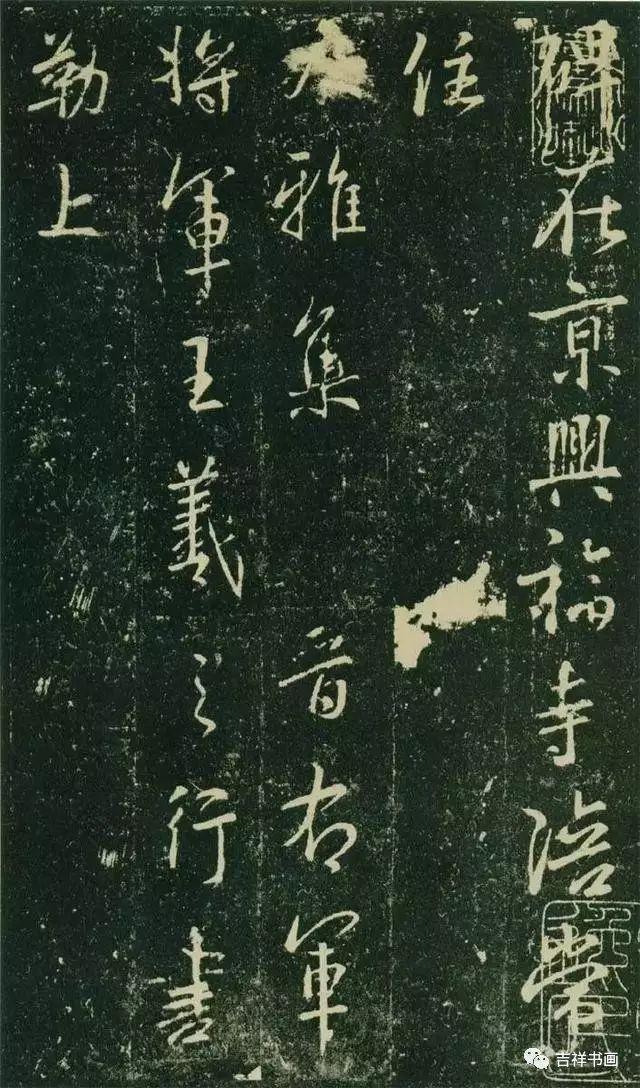 碑在京興福寺陪常
住
雅集晉右軍
將軍王羲之行書
勒上
吉祥书画